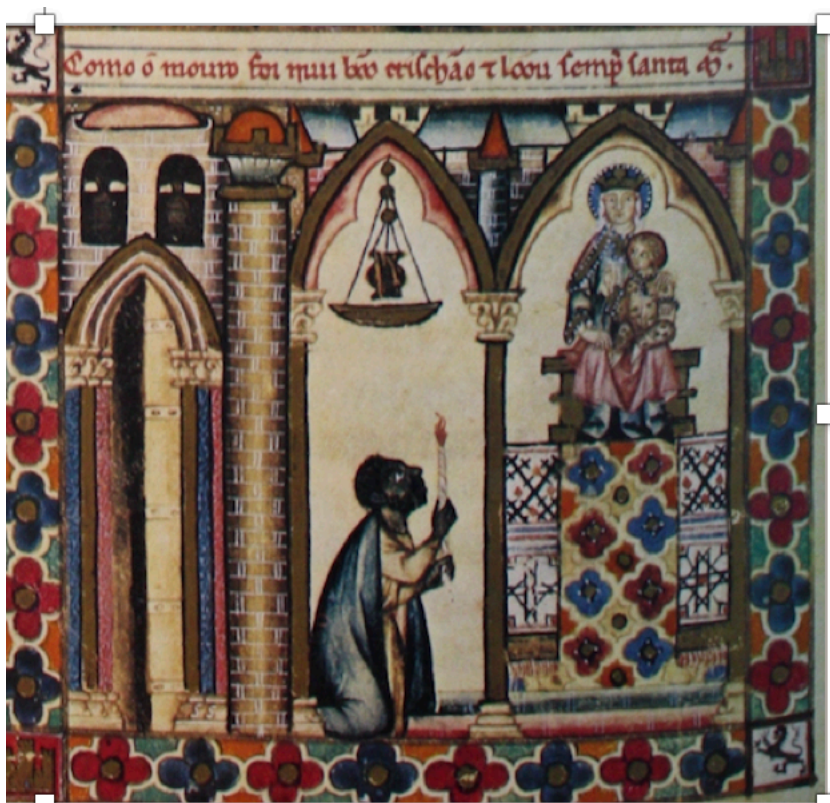 Como o mouro foi mui bõo crischão ⁊ loou semp̃ santa M̃.